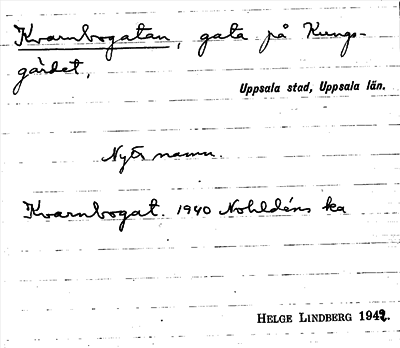 Kvarnbogatan, gata på Kungs-
gärdet,
Uppsala stad, Uppsala län.
Nytt namn.
Kvarnbogat. 1940 Nohldéns ka
HELGE LINDBERG 1942.